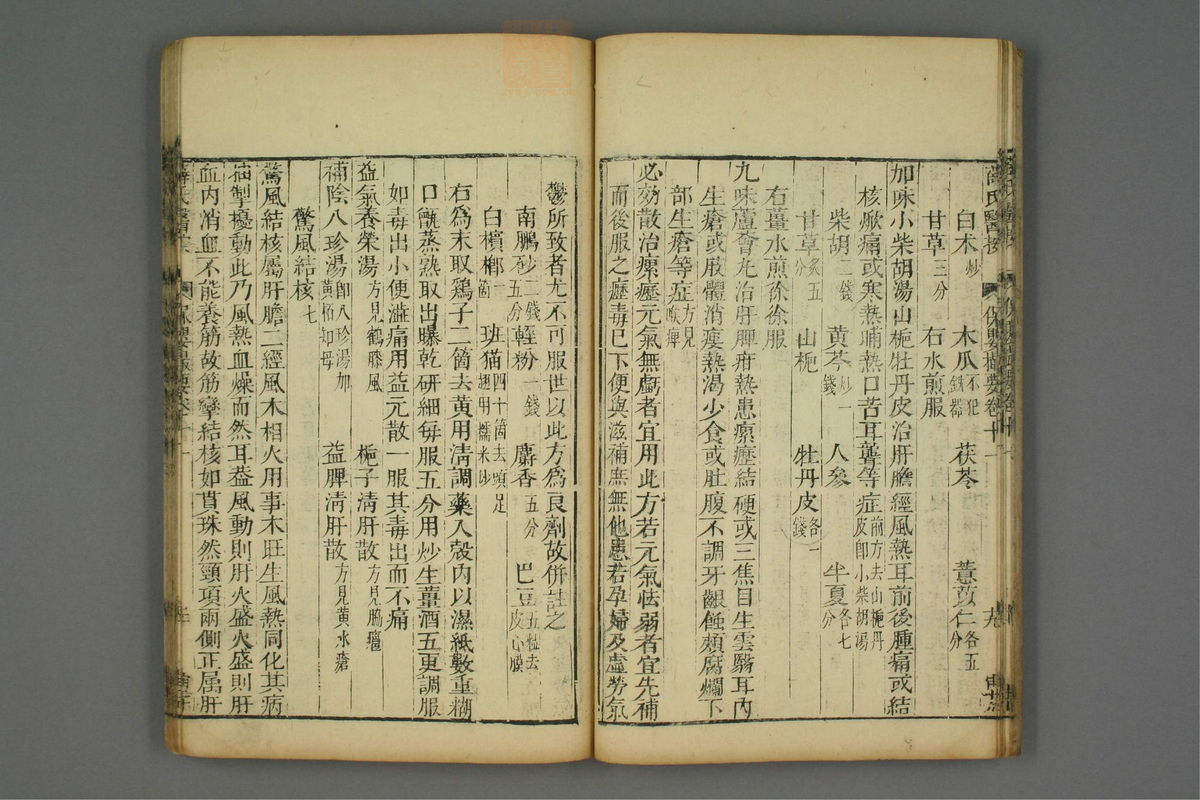 白朮炒 木瓜不犯鐵器 茯苓 薏苡仁各五分
甘草三分 右水煎服
加味小柴胡湯山梔牡丹皮治肝膽經風熱耳前後腫痛或結
核㿂痛或寒熱晡熱口苦耳聾等症前方去山梔丹皮卽小柴胡湯
柴胡二錢 黃芩炒一錢 人參 半夏各七分
甘草炙五分 山梔 牡丹皮各一錢
右薑水煎徐徐服
九味蘆薈丸治肝脾疳熱患瘰癧結硬或三焦目生雲翳耳內
生瘡或肢體消瘦熱渴少食或肚腹不調牙齦蝕頰腐爛下
部生瘡等症方見喉痺
必效散治瘰癧元氣無虧者宜用此方若元氣怯弱者宜先補
而後服之癧毒已下便與滋補庶無他患若孕婦及虛勞氣
鬱所致者尤不可服世以此方爲良劑故併註之
南鵬砂二錢五分 輕粉一錢 麝香五分 巴豆五粒去皮心膜
白檳榔一箇 班猫四十箇去頭足翅用糯米炒
右爲末取鷄子二箇去黃用淸調藥入殼內以濕紙數重糊
口甑蒸熟取出曝乾硏細每服五分用炒生薑酒五更調服
如毒出小便澁痛用益元散一服其毒出而不痛
益氣養榮湯方見鶴膝風 梔子淸肝散方見胸癰
補陰八珍湯卽八珍湯加黃栢知母 益脾淸肝散方見黃水瘡
驚風結核七
驚風結核屬肝膽二經風木相火用事木旺生風熱同化其病
搐掣擾動此乃風熱血燥而然耳葢風動則肝火盛火盛則肝
血內消血不能養筋故筋攣結核如貫珠然頸項兩側正屬肝